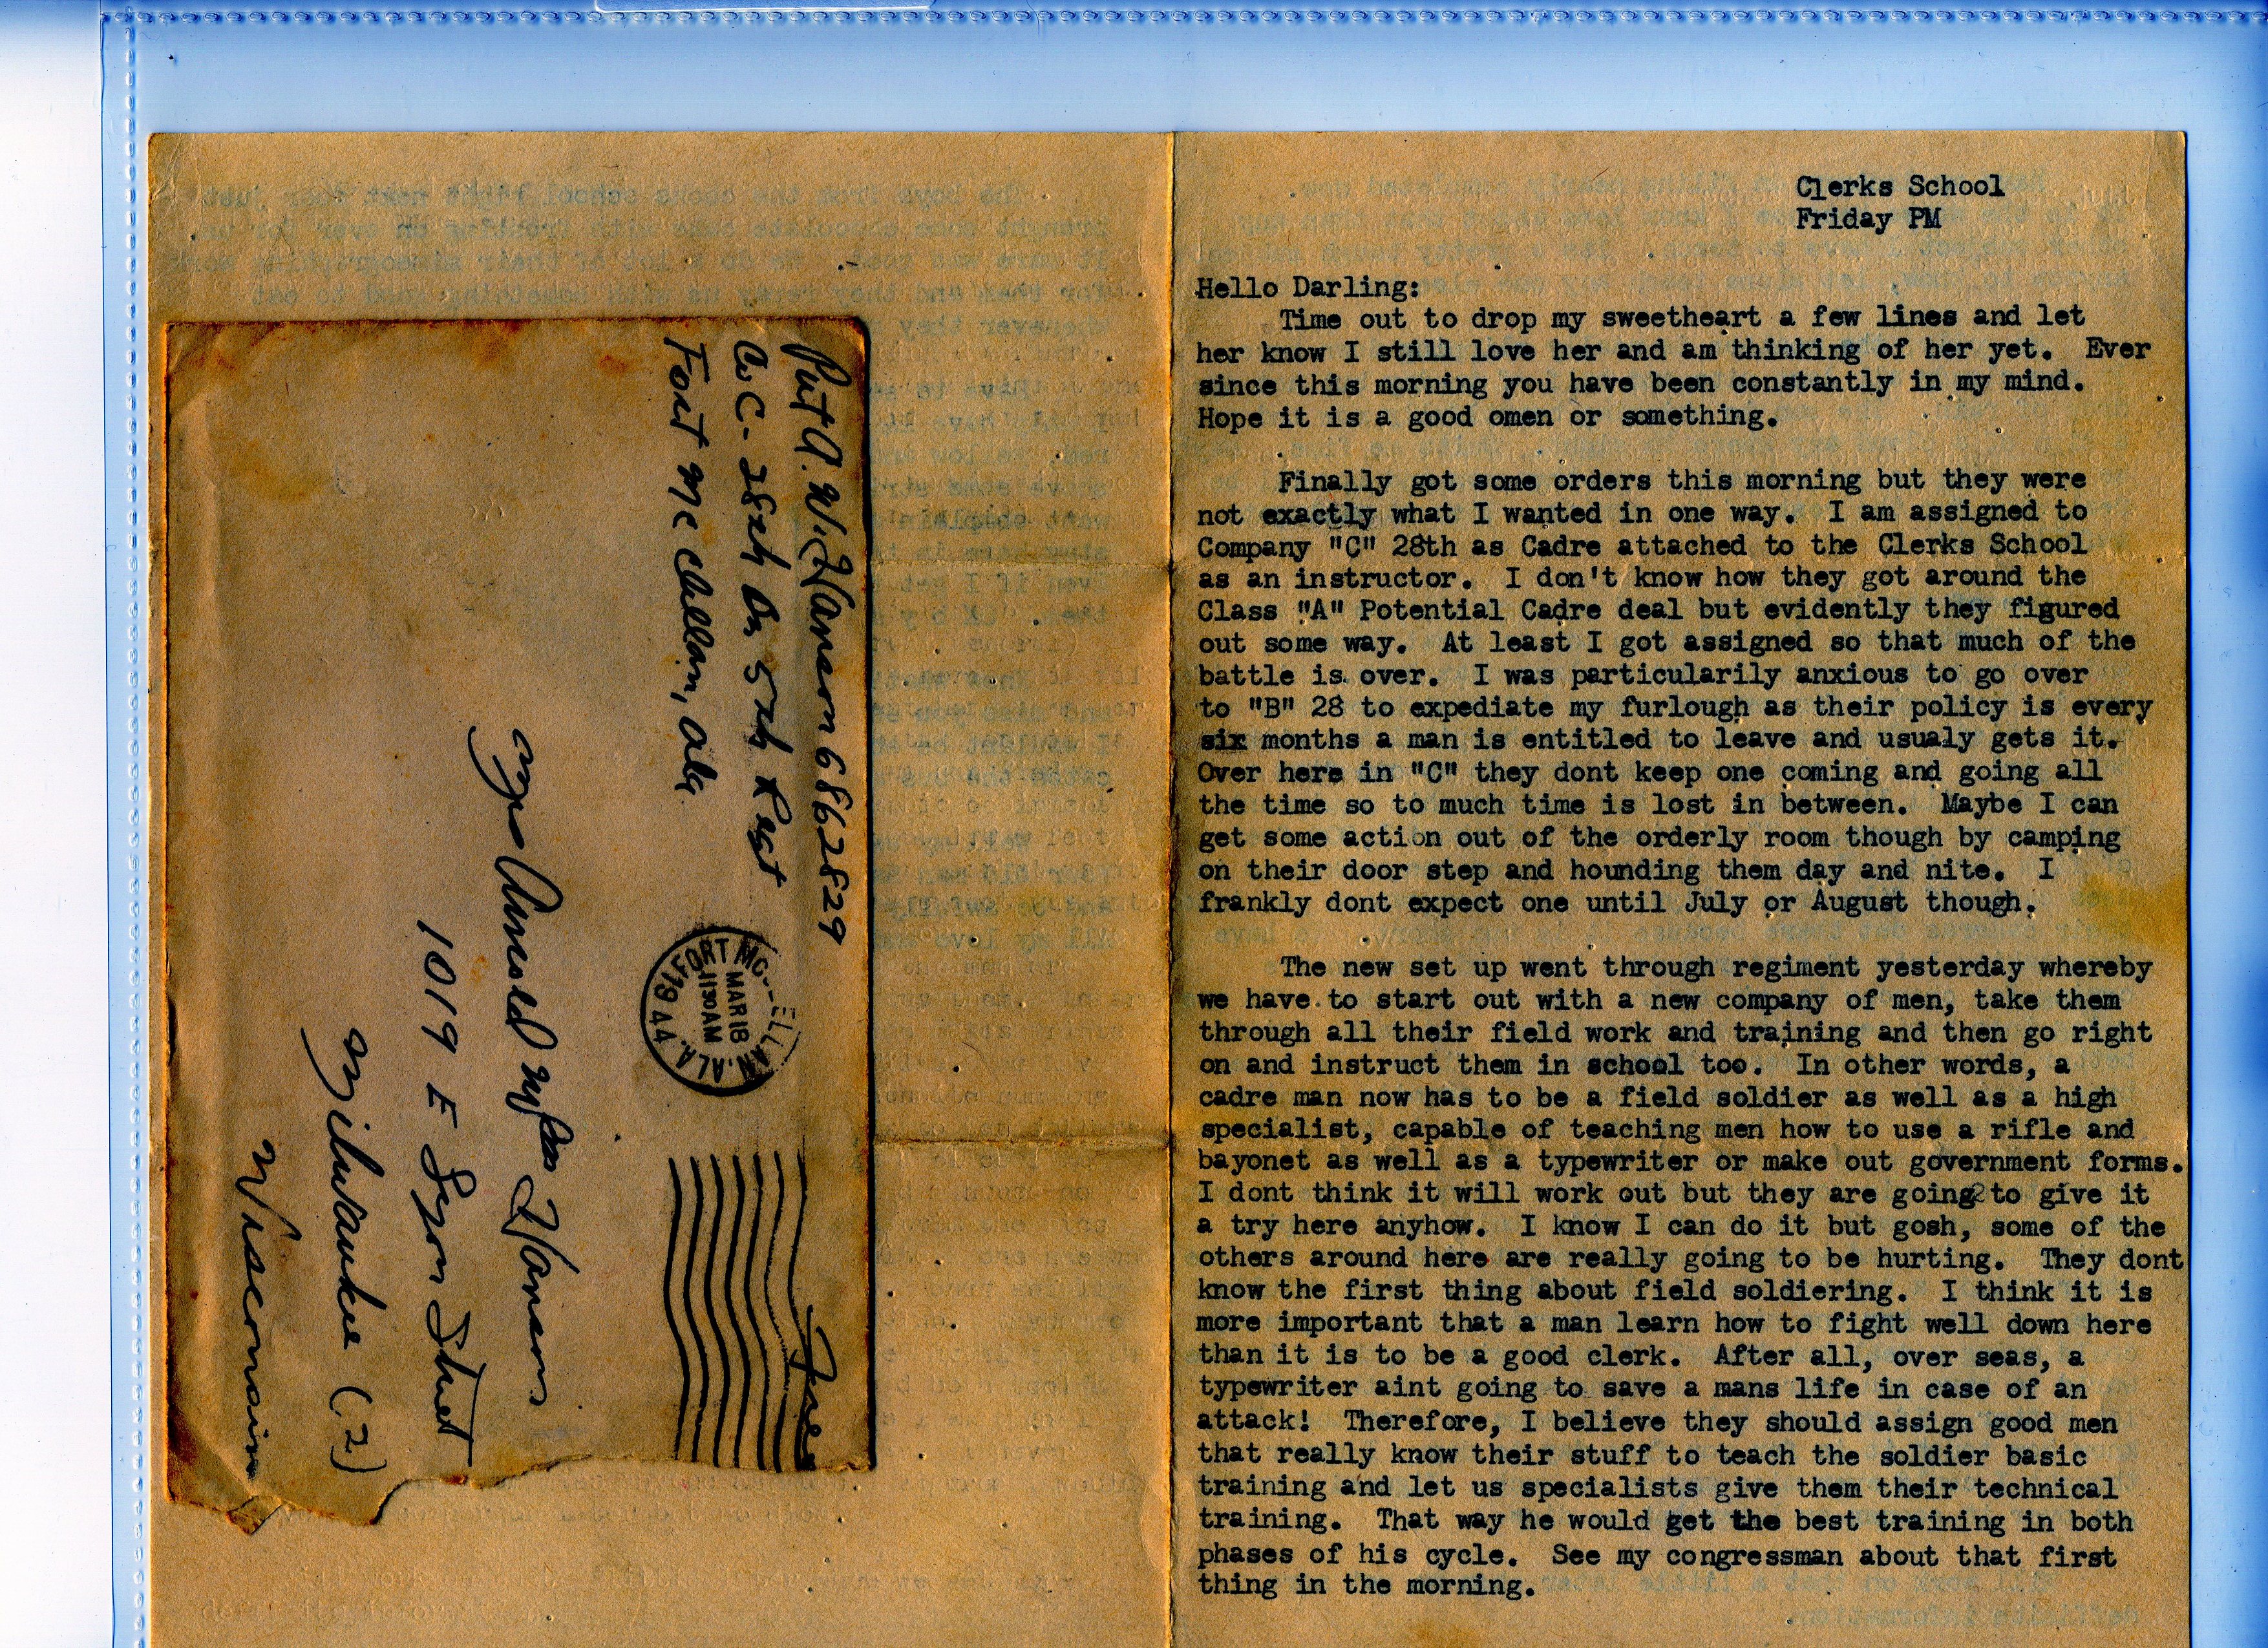 Pvt A. W. Hanson 6862829
Co C - 28th Bn 5th Regt
Fort Mc Clellan, Ala
Free
FORT MC ELLAN. ALA.
MAR 18
11 30 AM
1944
Mrs Arnold Hanson
1019 E Lyon Street
Milwaukee (2)
Wisconsin
Clerks School
Friday PM
Hello Darling:
Time out to drop my sweetheart a few lines and let
her know I still love her and am thinking of her yet. Ever
since this morning you have been constantly in my mind.
Hope it is a good omen or something.
Finally got some orders this morning but they were
not exactly what I wanted in one way. I am assigned to
Company "C" 28th as Cadre attached to the Clerks School
as an instructor. I don't know how they got around the
Class "A" Potential Cadre deal but evidently they figured
out some way. At least I got assigned so that much of the
battle is over. I was particularily anxious to go over
to "B" 28 to expediate my furlough as their policy is every
six months a man is entitled to leave and usualy gets it.
Over here in "C" they dont keep one coming and going all
the time so to much time is lost in between. Maybe I can
get some action out of the orderly room though by camping
on their door step and hounding them day and nite. I
frankly dont expect one until July or August though.
The new set up went through regiment yesterday whereby
we have to start out with a new company of men, take them
through all their field work and training and then go right
on and instruct them in school too. In other words, a
cadre man now has to be a field soldier as well as a high
specialist, capable of teaching men how to use a rifle and
bayonet as well as a typewriter or make out government forms.
I dont think it will work out but they are going to give it
a try here anyhow. I know I can do it but gosh, some of the
others around here are really going to be hurting. They dont
know the first thing about field soldiering. I think it is
more important that a man learn how to fight well down here
than it is to be a good clerk. After all, over seas, a
typewriter aint going to save a mans life in case of an
attack! Therefore, I believe they should assign good men
that really know their stuff to teach the soldier basic
training and let us specialists give them their technical
training. That way he would get the best training in both
phases of his cycle. See my congressman about that first
thing in the morning.